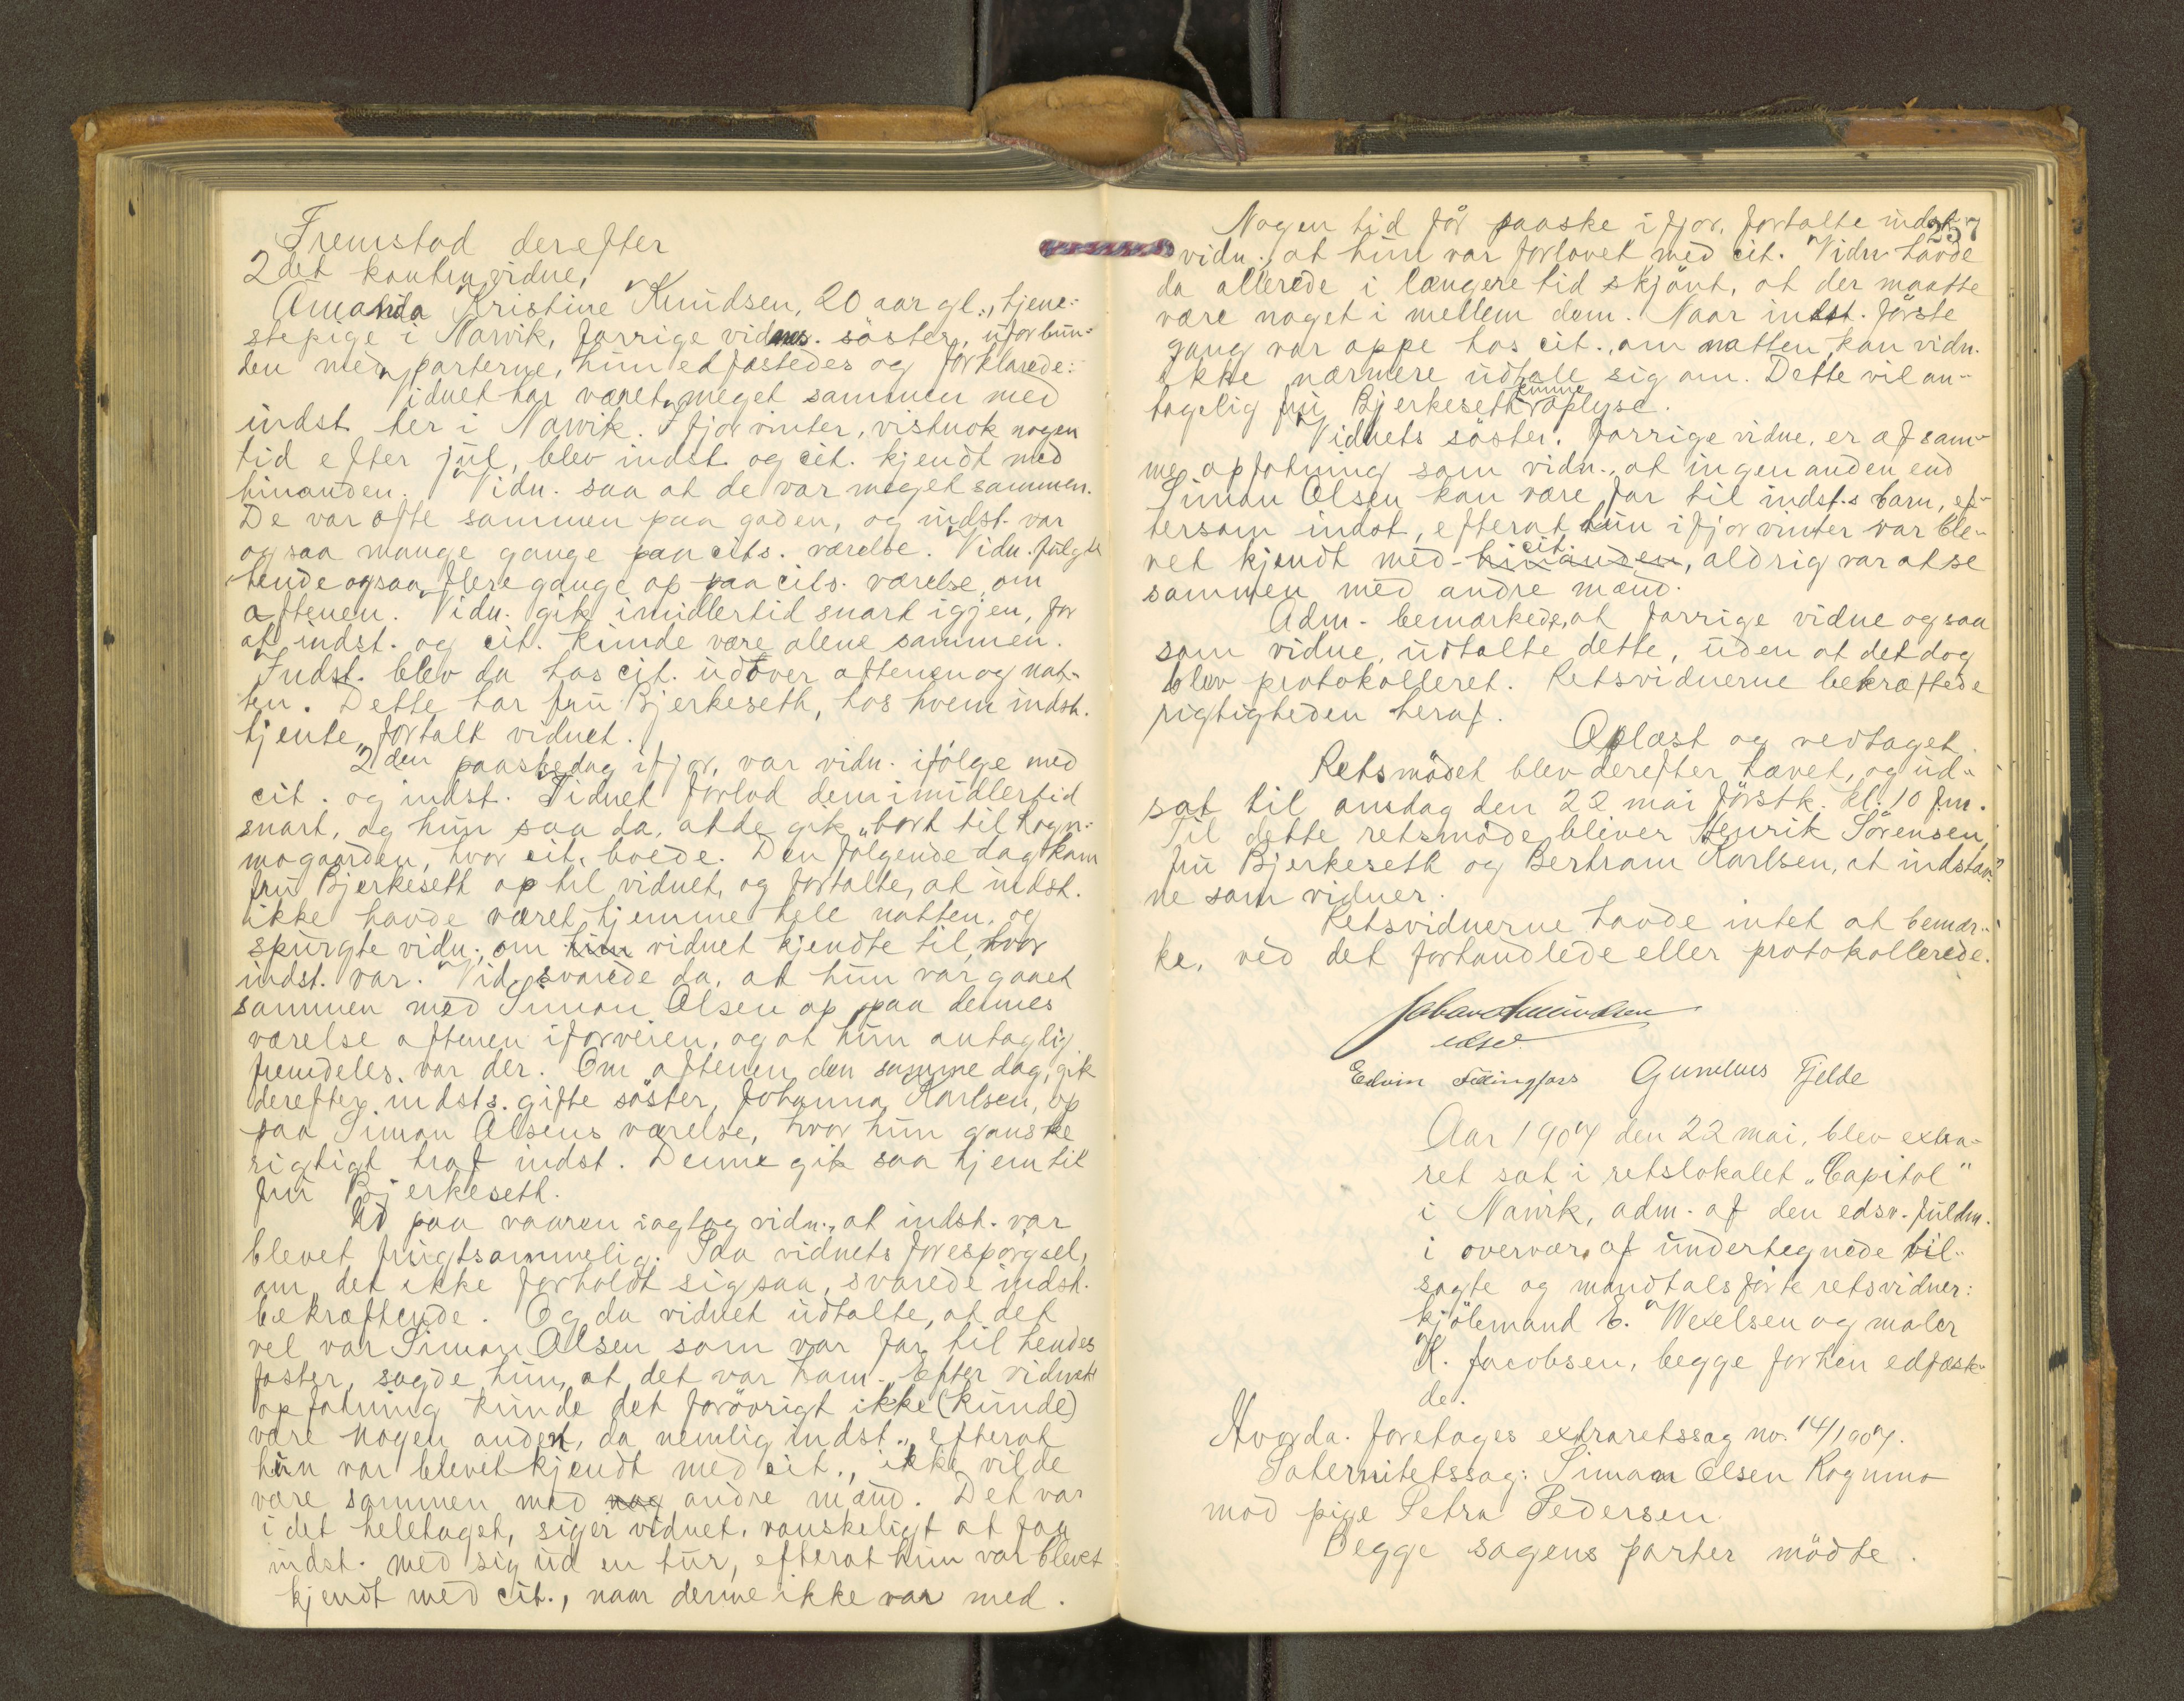 Fremstod derefter
2det kontravidne,
Amanda Kristine Knudsen, 20 aar gl., tjene-
stepige i Narvik, forrige vidnes. söster, uforbun-
den med parterne, hun edfæstedes og forklarede:
Vidnet har været meget sammen med
indst. her i Narvik. I fjor vinter, vistnok nogen
tid efter jul, blev indst. og cit. kjendt med
hinanden. Vidn. saa at de var meget sammen.
De var ofte sammen paa gaden, og indst. var
ogsaa mange gange paa cits. værelse. Vidn. fulgte
hende ogsaa flere gange op paa cits. værelse om
aftenen. Vidn. gik imidlertid snart igjen, for
at indst. og cit. kunde være alene sammen.
Indst. blev da hos cit. udover aftenen og nat-
ten. Dette har fru Bjerkeseth, hos hvem indst.
tjente, fortalt vidnet.
2den paaskedag ifjor, var vidn. ifölge med
cit. og indst. Vidnet forlod dem imidlertid
snart, og hun saa da, at de gik "bort til Rogn-
mogaarden, hvor cit. boede. Den fölgende dag kom
fru Bjerkeseth op til vidnet, og fortalte, at indst.
ikke havde været hjemme hele natten, og
spurgte vidn., om hun vidnet kjendte til, hvor
indst. var. Vid. svarede da, at hun var gaaet
sammen med Simon Olsen op paa dennes
værelse aftenen iforveien, og at hun antaglig
fremdeles var der. Om aftenen den samme dag, gik
derefter indsts. gifte söster, Johanna Karlsen, op
paa Simon Olsens værelse, hvor hun ganske
rigtigt traf indst. Denne gik saa hjem til
fru Bjerkeseth.
Ud paa vaaren iagtog vidn., at indst. var
blevet frugtsommelig. Paa vidnets forespörgsel,
om det ikke forholdt sig saa, svarede indst.
bekræftende. Og da vidnet udtalte, at det
vel var Simon Olsen som var far til hendes
foster, sagde hun, at det var ham. Efter vidnets
opfatning kunde det forövrigt ikke (kunde)
være nogen anden, da nemlig indst., efterat
hun var blevet kjendt med cit., ikke vilde
være sammen med nog andre mænd. Det var
i det heletaget, siger vidnet, vanskeligt at faa
indst. med sig ud en tur, efterat hun var blevet
kjendt med cit., naar denne ikke var med.
257
Nogen tid för paaske i fjor, fortalte indst.
vidn., at hun var forlovet med cit. Vidn. havde
da allerede i længere tid skjönt, at der maatte
være noget i mellem dem. Naar indst. förste
gang var oppe hos cit., om natten, kan vidn.
ikke nærmere udtale sig om. Dette vil an-
tagelig fru Bjerkeseth kunne oplyse.
Vidnets söster, forrige vidne, er af sam-
me opfatning som vidn., at ingen anden end
Simon Olsen kan være far til indst.s barn, ef-
tersom indst., efterat hun i fjor vinter var ble-
vet kjendt med hinanden cit., aldrig var at se
sammen med andre mænd.
Adm. bemærkede, at forrige vidne ogsaa
som vidne, udtalte dette, uden at det dog
blev protokolleret. Retsvidnerne bekræftede
rigtigheden heraf.
Oplæst og vedtaget.
Retsmödet blev derefter hævet, og ud-
sat til onsdag den 22 mai förstk. kl. 10 fm.
Til dette retsmöde bliver Henrik Sörensen,
fru Bjerkeseth og Bertram Karlsen, at indstæv-
ne som vidner.
Retsvidnerne havde intet at bemær-
ke, ved det forhandlede eller protokollerede.
edsv.
Edvin Fellingfors Gunelius Fjelde
Aar 1907 den 22 mai, blev extra-
ret sat i retslokalet "Capitol"
i Narvik, adm. af den edsv. fuldm.
i overvær af undertegnede til-
sagte og mandtalsförte retsvidner:
kjölemand E. Wexelsen og maler
K. Jacobsen, begge forhen edfæste-
de.
Hvorda. foretages extraretssag no. 14/1907.
Paternitetssag: Simon Olsen Rognmo
mod pige Petra Pedersen.
Begge sagens parter mödte.